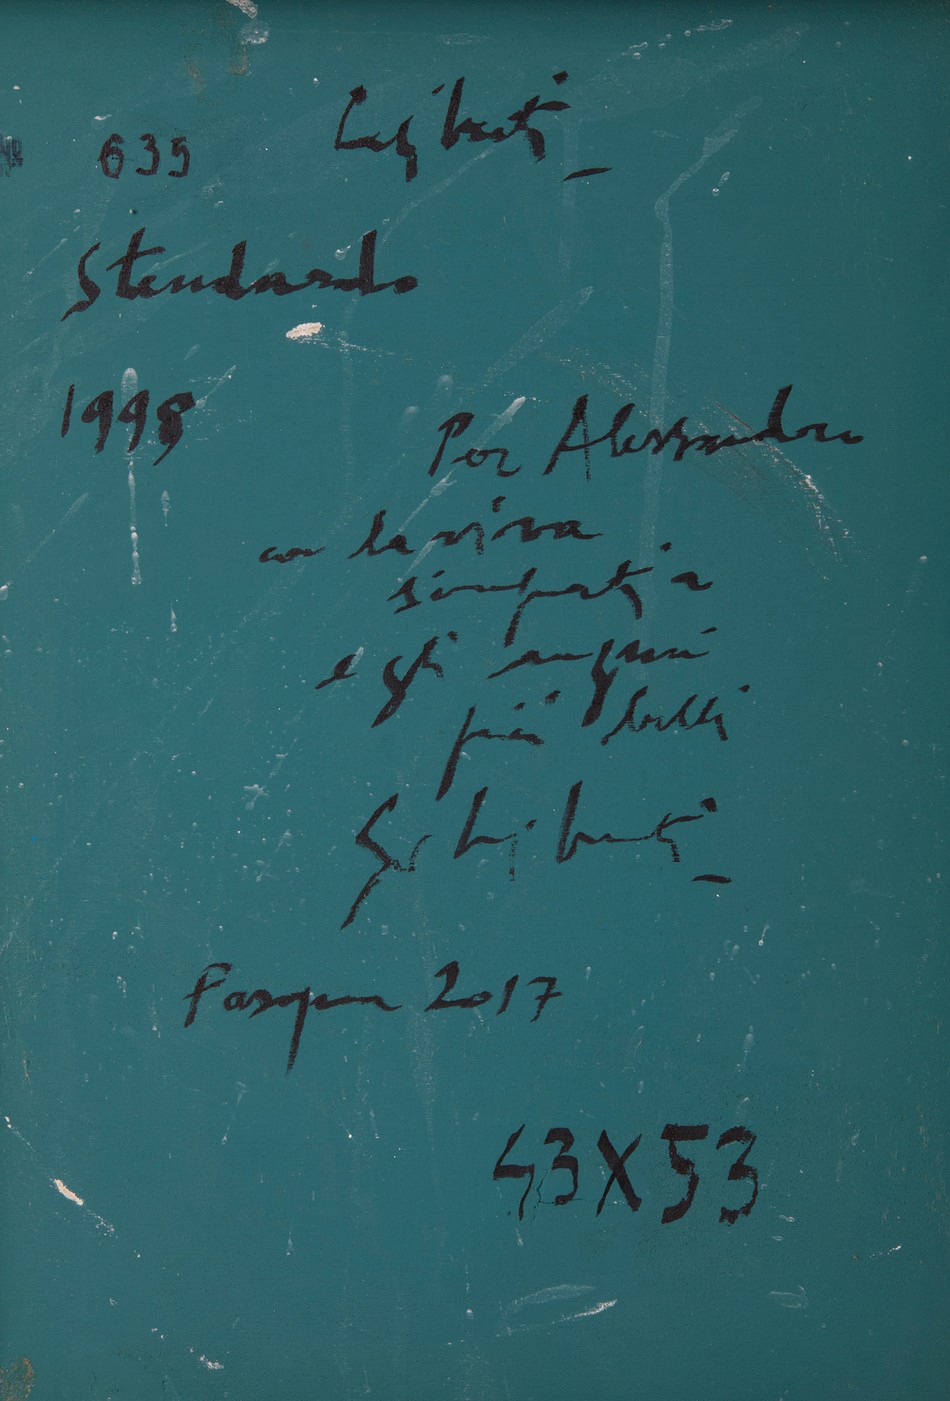 Nº 635
Stendardo
1998
Per Alessandro
con la viva
simpatia
e gli auguri
più belli
Pasqua 2017
43X53